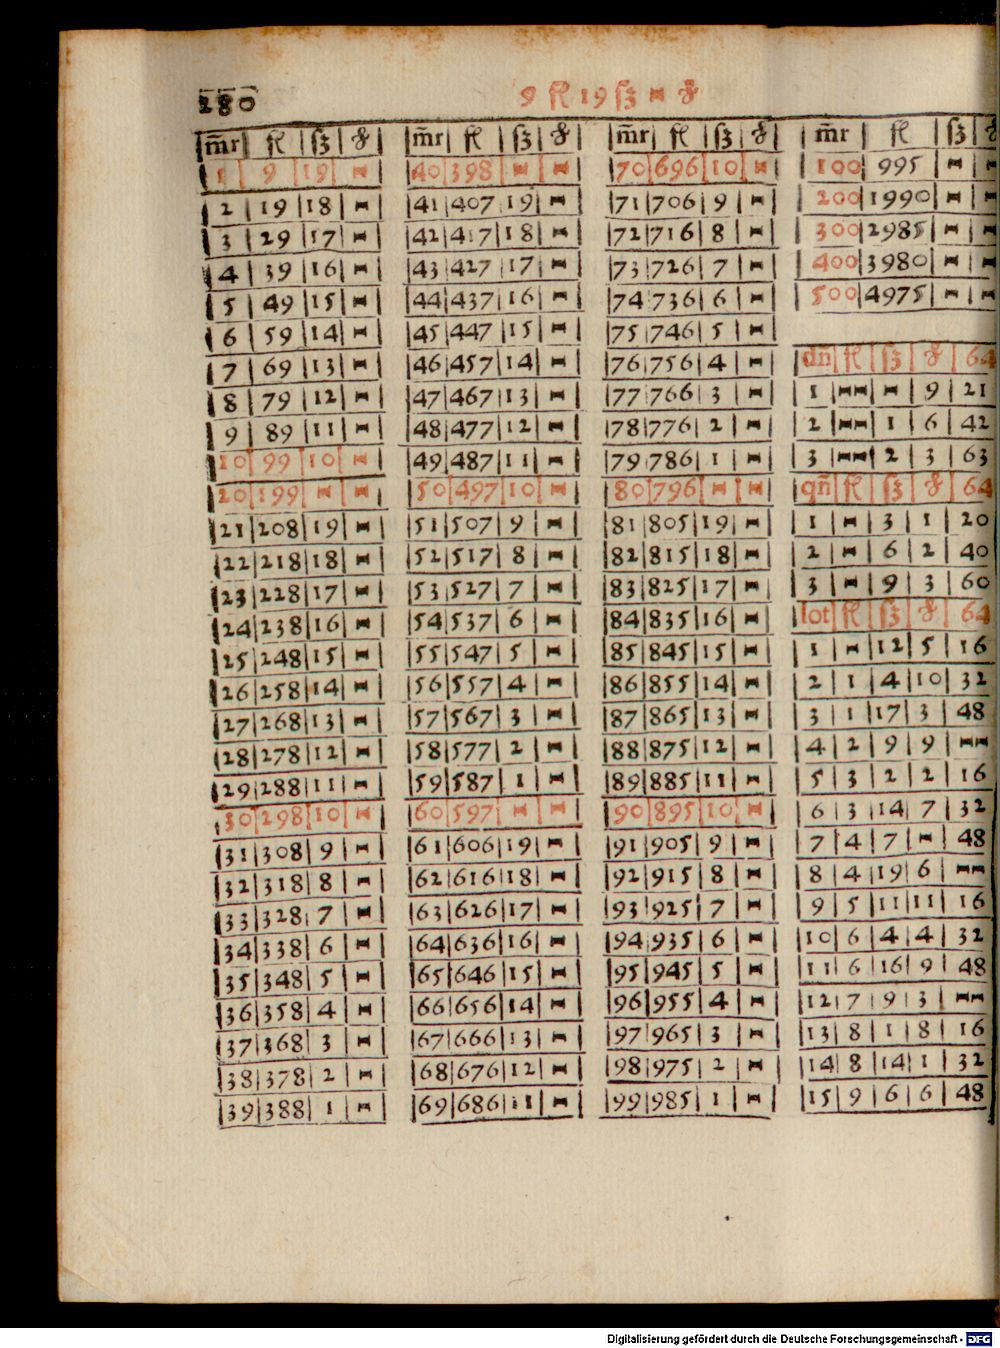 280
9 fl 19 ſz ⋈ ₰
m̄r | fl | ſz | ₰
1 | 9 | 19 | ⋈
2 | 19 | 18 | ⋈
3 | 29 | 17 | ⋈
4 | 39 | 16 | ⋈
5 | 49 | 15 | ⋈
6 | 59 | 14 | ⋈
7 | 69 | 13 | ⋈
8 | 79 | 12 | ⋈
9 | 89 | 11 | ⋈
10 | 99 | 10 | ⋈
20 | 199 | ⋈ | ⋈
21 | 208 | 19 | ⋈
22 | 218 | 18 | ⋈
23 | 228 | 17 | ⋈
24 | 238 | 16 | ⋈
25 | 248 | 15 | ⋈
26 | 258 | 14 | ⋈
27 | 268 | 13 | ⋈
28 | 278 | 12 | ⋈
29 | 288 | 11 | ⋈
30 | 298 | 10 | ⋈
31 | 308 | 9 | ⋈
32 | 318 | 8 | ⋈
33 | 328 | 7 | ⋈
34 | 338 | 6 | ⋈
35 | 348 | 5 | ⋈
36 | 358 | 4 | ⋈
37 | 368 | 3 | ⋈
38 | 378 | 2 | ⋈
39 | 388 | 1 | ⋈
m̄r | fl | ſz | ₰
40 | 398 | ⋈ | ⋈
41 | 407 | 19 | ⋈
42 | 417 | 18 | ⋈
43 | 427 | 17 | ⋈
44 | 437 | 16 | ⋈
45 | 447 | 15 | ⋈
46 | 457 | 14 | ⋈
47 | 467 | 13 | ⋈
48 | 477 | 12 | ⋈
49 | 487 | 11 | ⋈
50 | 497 | 10 | ⋈
51 | 507 | 9 | ⋈
52 | 517 | 8 | ⋈
53 | 527 | 7 | ⋈
54 | 537 | 6 | ⋈
55 | 547 | 5 | ⋈
56 | 557 | 4 | ⋈
57 | 567 | 3 | ⋈
58 | 577 | 2 | ⋈
59 | 587 | 1 | ⋈
60 | 597 | ⋈ | ⋈
61 | 606 | 19 | ⋈
62 | 616 | 18 | ⋈
63 | 626 | 17 | ⋈
64 | 636 | 16 | ⋈
65 | 646 | 15 | ⋈
66 | 656 | 14 | ⋈
67 | 666 | 13 | ⋈
68 | 676 | 12 | ⋈
69 | 686 | 11 | ⋈
m̄r | fl | ſz | ₰
70 | 696 | 10 | ⋈
71 | 706 | 9 | ⋈
72 | 716 | 8 | ⋈
73 | 726 | 7 | ⋈
74 | 736 | 6 | ⋈
75 | 746 | 5 | ⋈
76 | 756 | 4 | ⋈
77 | 766 | 3 | ⋈
78 | 776 | 2 | ⋈
79 | 786 | 1 | ⋈
80 | 796 | ⋈ | ⋈
81 | 805 | 19 | ⋈
82 | 815 | 18 | ⋈
83 | 825 | 17 | ⋈
84 | 835 | 16 | ⋈
85 | 845 | 15 | ⋈
86 | 855 | 14 | ⋈
87 | 865 | 13 | ⋈
88 | 875 | 12 | ⋈
89 | 885 | 11 | ⋈
90 | 895 | 10 | ⋈
91 | 905 | 9 | ⋈
92 | 915 | 8 | ⋈
93 | 925 | 7 | ⋈
94 | 935 | 6 | ⋈
95 | 945 | 5 | ⋈
96 | 955 | 4 | ⋈
97 | 965 | 3 | ⋈
98 | 975 | 2 | ⋈
99 | 985 | 1 | ⋈
m̄r | fl | ſz | ₰
100 | 995 | ⋈ | ⋈
200 | 1990 | ⋈ | ⋈
300 | 2985 | ⋈ | ⋈
400 | 3980 | ⋈ | ⋈
500 | 4975 | ⋈ | ⋈
dn̄ | fl | ſz | ₰ | 64
1 | ⋈⋈ | ⋈ | 9 | 21
2 | ⋈⋈ | 1 | 6 | 42
3 | ⋈⋈ | 2 | 3 | 63
qn̄ | fl | ſz | ₰ | 64
1 | ⋈ | 3 | 1 | 20
2 | ⋈ | 6 | 2 | 40
3 | ⋈ | 9 | 3 | 60
lot | fl | ſz | ₰ | 64
1 | ⋈ | 12 | 5 | 16
2 | 1 | 4 | 10 | 32
3 | 1 | 17 | 3 | 48
4 | 2 | 9 | 9 | ⋈⋈
5 | 3 | 2 | 2 | 16
6 | 3 | 14 | 7 | 32
7 | 4 | 7 | ⋈ | 48
8 | 4 | 19 | 6 | ⋈⋈
9 | 5 | 11 | 11 | 16
10 | 6 | 4 | 4 | 32
11 | 6 | 16 | 9 | 48
12 | 7 | 9 | 3 | ⋈⋈
13 | 8 | 1 | 8 | 16
14 | 8 | 14 | 1 | 32
15 | 9 | 6 | 6 | 48
Digitalisierung gefördert durch die Deutsche Forschungsgemeinschaft - DFG